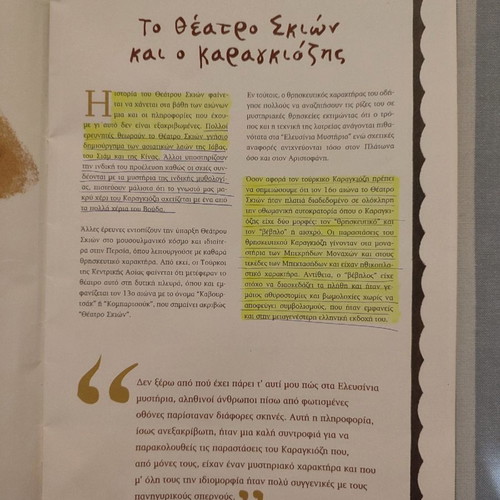 Το Θέατρο Σκιών
και ο Καραγκιόζης
Η ιστορία του Θεάτρου Σκιών φαίνε-
ται να χάνεται στα βάθη των αιώνων
μια και οι πληροφορίες που έχου-
με γι' αυτό δεν είναι εξακριβωμένες. Πολλοί
ερευνητές θεωρούν το Θέατρο Σκιών γνήσιο
δημιούργημα των ασιατικών λαών της Ιάβας,
του Σιάμ και της Κίνας. Άλλοι υποστηρίζουν
την ινδική του προέλευση καθώς οι σκιές συν-
δέονται με τα μυστήρια της ινδικής μυθολογί-
ας, πιστεύουν μάλιστα ότι το γνωστό μας μα-
κρύ χέρι του Καραγκιόζη σχετίζεται με ένα από
τα πολλά χέρια του Βούδα.
Άλλες έρευνες εντοπίζουν την ύπαρξη Θεάτρου
Σκιών στο μουσουλμανικό κόσμο και ιδιαίτε-
ρα στην Περσία, όπου λειτουργούσε με καθαρά
θρησκευτικό χαρακτήρα. Από εκεί, οι Τούρκοι
της Κεντρικής Ασίας φαίνεται ότι μετέφεραν το
θέατρο αυτό στη δυτική πλευρά, όπου και εμ-
φανίζεται τον 13ο αιώνα με το όνομα
"Θέατρο Σκιών".
Εν τούτοις, ο θρησκευτικός χαρακτήρας του οδή-
γησε πολλούς να αναζητήσουν τις ρίζες του σε
μυστηριακές θρησκείες εκτιμώντας ότι ο τρό-
πος και η τεχνική της λατρείας ανάγονται πιθα-
νότατα στα "Ελευσίνια Μυστήρια" ενώ σχετικές
αναφορές ανιχνεύονται τόσο στον Πλάτωνα
όσο και στον Αριστοφάνη.
Όσον αφορά τον τούρκικο Καραγκιόζη πρέπει
να σημειώσουμε ότι τον 16ο αιώνα το Θέατρο
Σκιών ήταν πλατιά διαδεδομένο σε ολόκληρη
την οθωμανική αυτοκρατορία όπου ο Καραγκι-
όζης είχε δυο μορφές: τον "θρησκευτικό" και
τον "βέβηλο" ή αισχρό. Οι παραστάσεις του
θρησκευτικού Καραγκιόζη γίνονταν στα μονα-
στήρια των Μπεκρήδων Μοναχών και στους
τεκέδες των Μπεκτασήδων και είχαν ηθικοπλα-
στικό χαρακτήρα. Αντίθετα, ο "βέβηλος" είχε
στόχο να διασκεδάζει τα πλήθη και ήταν γε-
μάτος αθυροστομίες και βωμολοχίες χωρίς να
αποφεύγει συμβολισμούς, που ήταν εμφανείς
και στην μεταγενέστερη ελληνική εκδοχή του.
“ Δεν ξέρω από πού έχει πάρει τ' αυτί μου πώς στα Ελευσίνια
μυστήρια, αληθινοί άνθρωποι πίσω από φωτισμένες
οθόνες παρίσταναν διάφορες σκηνές. Αυτή η πληροφορία,
ίσως ανεξακρίβωτη, ήταν μια καλή συντροφιά για να
παρακολουθείς τις παραστάσεις του Καραγκιόζη που,
από μόνες τους, είχαν ένα μυστηριακό χαρακτήρα και που
μ' όλη τους την ιδιομορφία ήταν πολύ συγγενικές με τους
πανηγυρικούς σπερνούς. ”